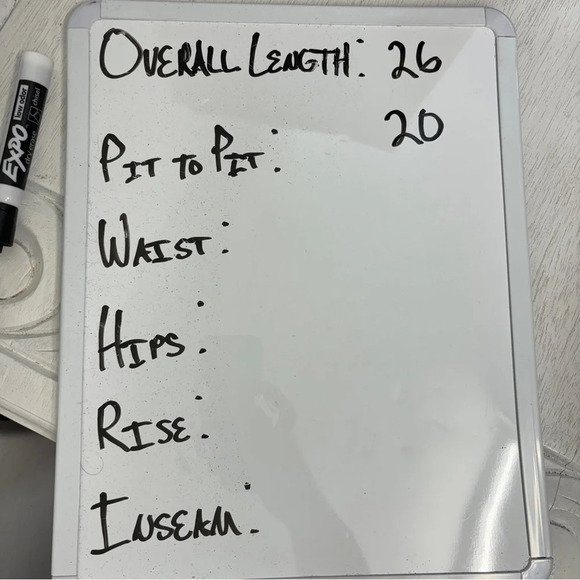 OVERALL LENGTH: 26
PIT TO PIT: 20
WAIST:
HIPS:
RISE:
INSEAM:
EXPO
low odor
chisel